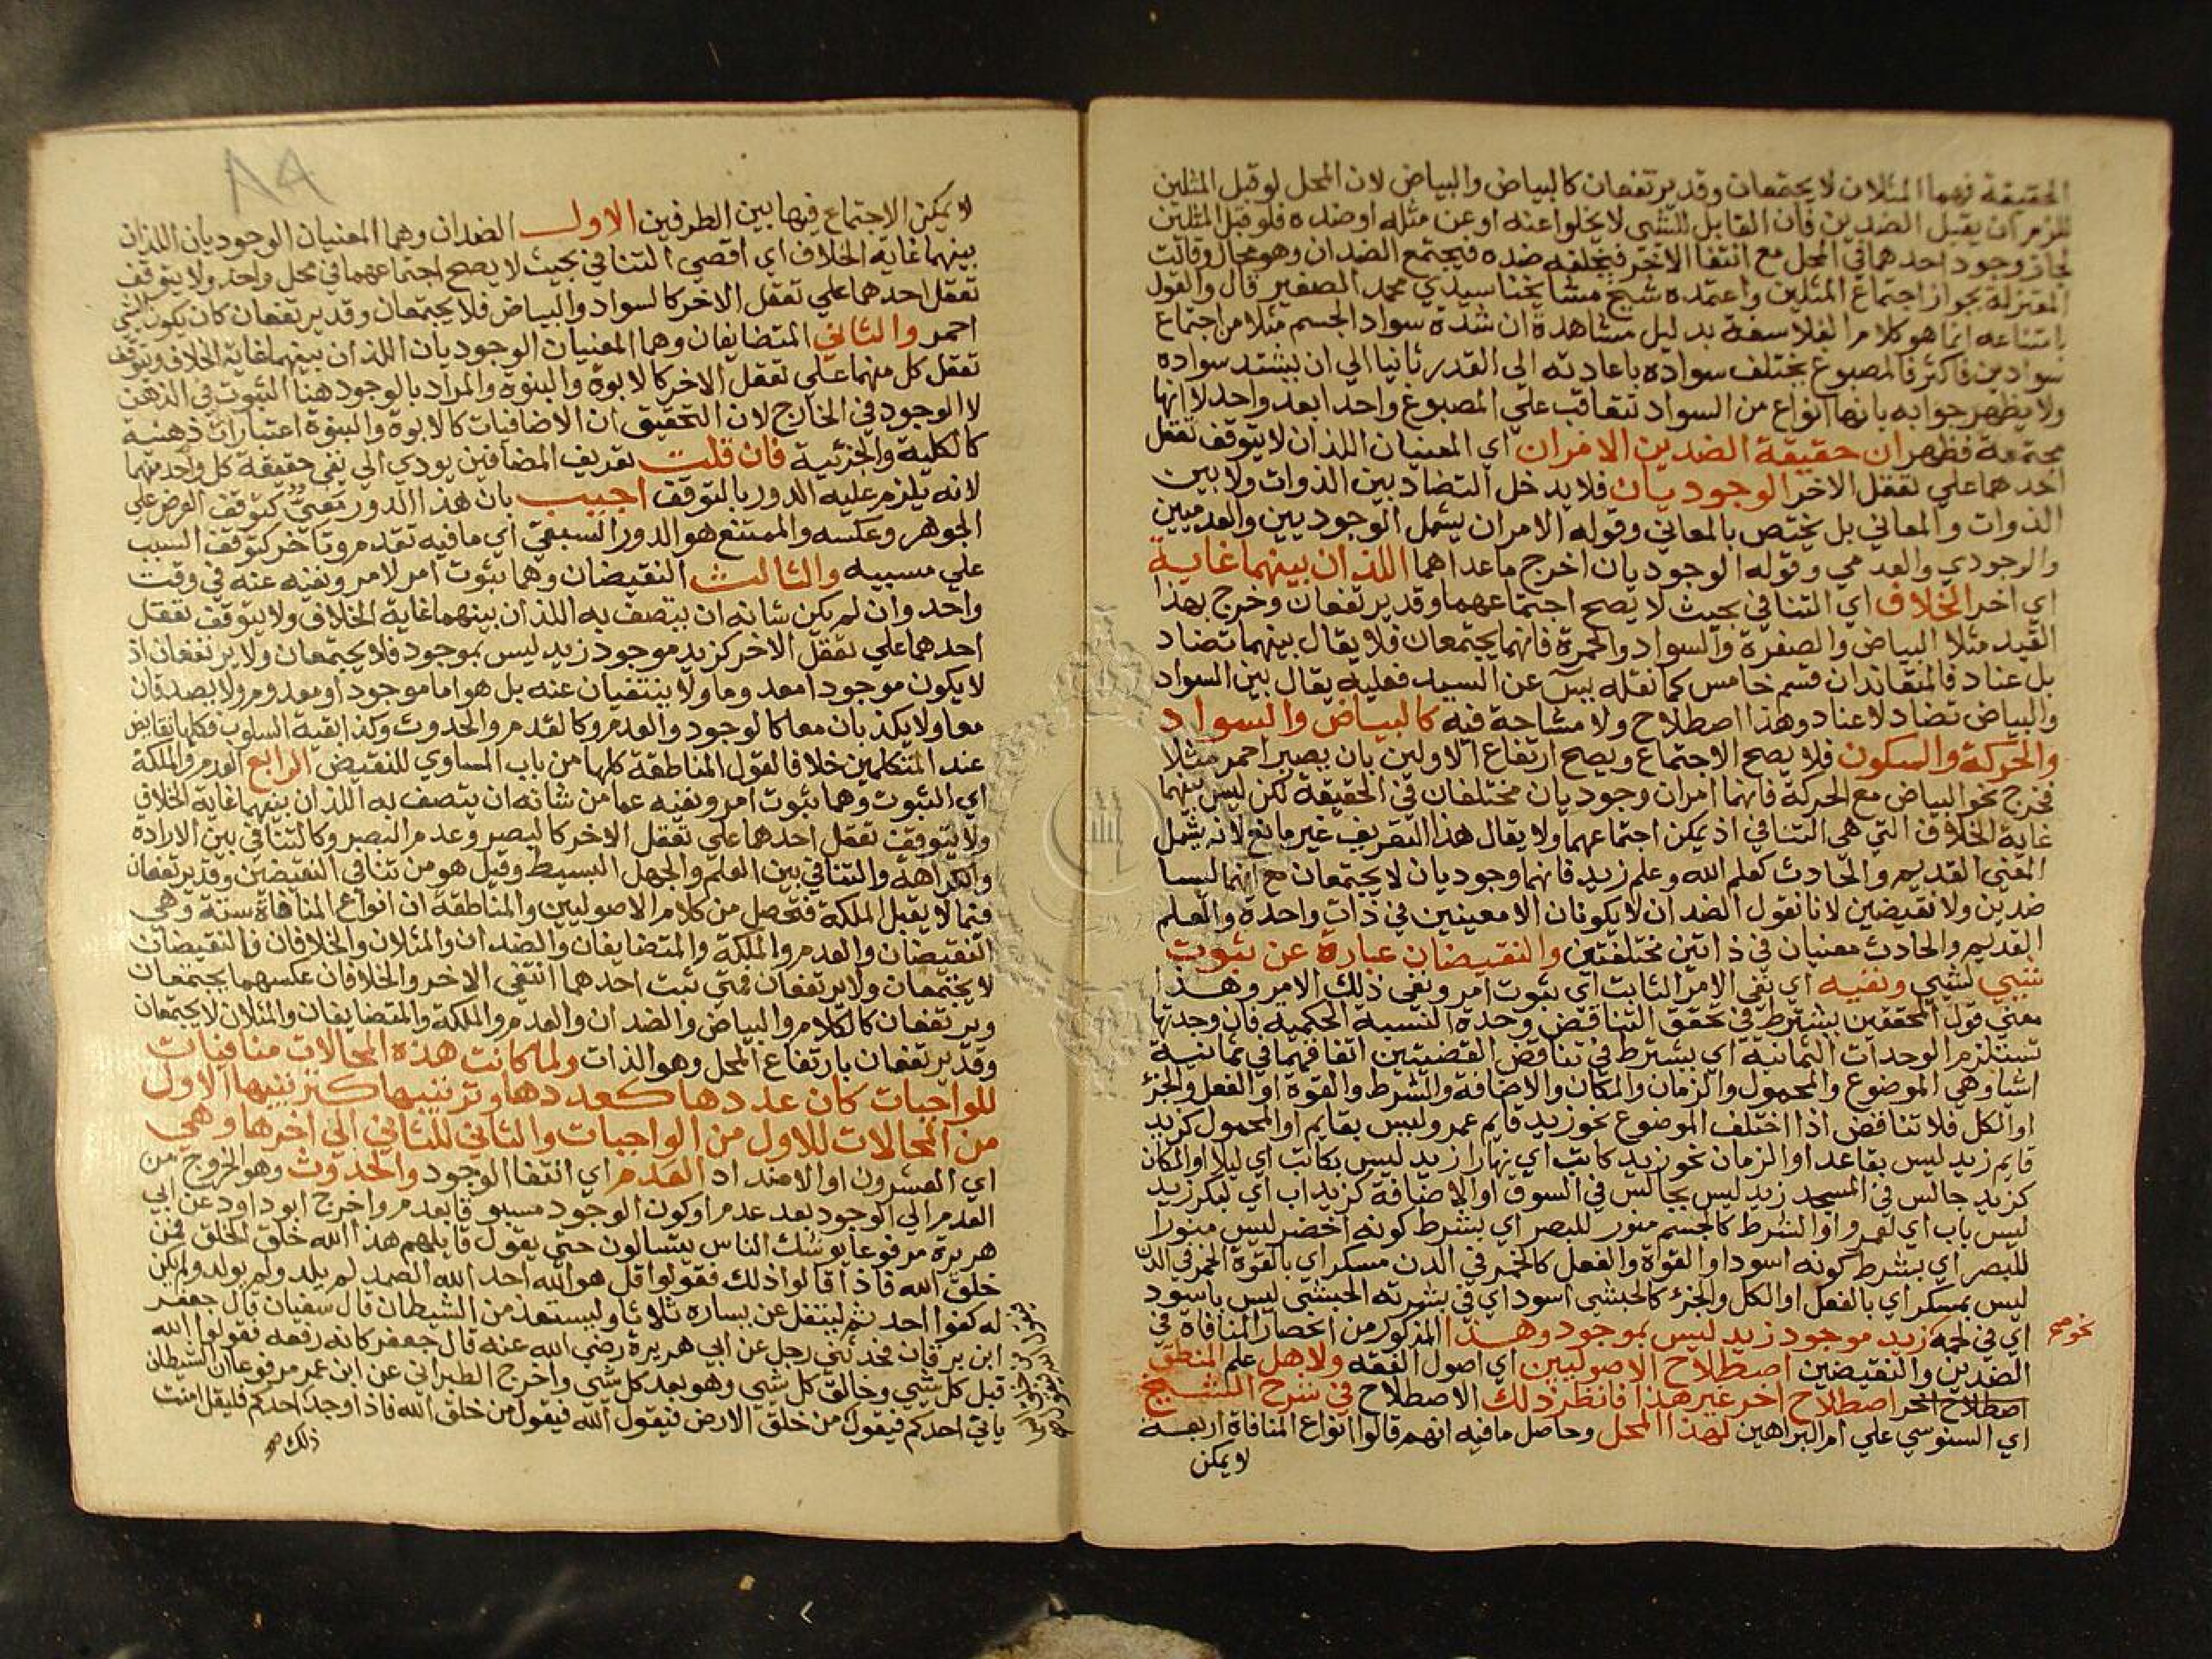 الحقيقة فهما المثلان لا يجتمعان وقد يرتفعان كالبياض والبياض لان المحل لو قبل المثلين
للزم ان يقبل الضدين فان القابل للشي لا يخلوا عنه او عن مثله او ضده فلو قبل المثلين
لجاز وجود احدهما في المحل مع انتفا الاخر فيخلفه ضده فيجتمع الضدان وهو محال وقالت
المعتزلة بجواز اجتماع المثلين واعتمده شيخ مشايخنا سيدي محمد الصغير قال والقول
بامتناعه انما هو كلام الفلاسفة بدليل مشاهدة ان شدة سواد الجسم مثلا من اجتماع
سوادين فاكثر فالمصبوغ يختلف سواده باعادته الى القدر ثانيا الى ان يشتد سواده
ولا يظهر جوابه بانها انواع من السواد تتعاقب علي المصبوغ واحدا بعد واحد لا انها
مجتمعة فظهر ان حقيقة الضدين الامران اي المعنيان اللذان لا يتوقف تعقل
احدهما علي تعقل الاخر الوجوديان فلا يدخل التضاد بين الذوات ولا بين
الذوات والمعاني بل يختص بالمعاني وقوله الامران يشمل الوجوديين والعدميين
والوجودي والعدمي وقوله الوجوديان اخرج ماعداهما اللذان بينهما غاية
اي اخر الخلاف اي التنافي بحيث لا يصح اجتماعهما وقد يرتفعان وخرج بهذا
القيد مثلا البياض والصفرة والسواد والحمرة فانهما يجتمعان فلا يقال بينهما تضاد
بل عناد فالمتعاندان قسم خامس كما نقله يس عن السيد فعليه يقال بين السواد
والبياض تضاد لا عناد وهذا اصطلاح ولا مشاحة فيه كالبياض والسواد
والحركة والسكون فلا يصح الاجتماع ويصح ارتفاع الاولين بان يصير احمر مثلا
فخرج نحو البياض مع الحركة فانهما امران وجوديان مختلفان في الحقيقة لكن ليس بينهما
غاية الخلاف التي هي التنافي اذ يمكن اجتماعهما ولا يقال هذا التعريف غير مانع لانه يشمل
المعنى القديم والحادث كعلم الله وعلم زيد فانهما وجوديان لا يجتمعان مع انهما ليسا
ضدين ولا نقيضين لانا نقول الضدان لا يكونان الا معنيين في ذات واحدة والعلم
القديم والحادث معنيان في ذاتين مختلفتين والنقيضان عبارة عن ثبوت
شيي لشيي ونفيه اي نفي الامر الثابت اي ثبوت امر ونفي ذلك الامر وهذا
معني قول المحققين يشترط في تحقق التناقض وحدة النسبة الحكمية فان وحدتها
تستلزم الوحدات الثمانية اي يشترط في تناقض القضيتين اتفاقهما في ثمانية
اشيا وهي الموضوع والمحمول والزمان والمكان والاضافة والشرط والقوة او الفعل والجزؤ
او الكل فلا تناقض اذا اختلف الموضوع نحو زيد قايم عمرو ليس بقايم او المحمول كزيد
قايم زيد ليس بقاعد او الزمان نحو زيد كاتب اي نهارا زيد ليس بكاتب اي ليلا او المكان
كزيد جالس في المسجد زيد ليس بجالس في السوق او الاضافة كزيد اب اي لبكر زيد
ليس باب اي لعمرو او الشرط كالجسم منور للبصر اي بشرط كونه اخضر ليس منورا
للبصر اي بشرط كونه اسود او القوة والفعل كالخمر في الدن مسكر اي بالقوة الخمر في الدن
ليس بمسكر اي بالفعل او الكل والجزؤ كالحبشي اسود اي في بشرته الحبشي ليس باسود
اي في لحمه زيد موجود زيد ليس بموجود وهذا المذكور من انحصار المنافاة في
نحو صح
الضدين والنقيضين اصطلاح الاصوليين اي اصول الفقه ولاهل علم المنطق
اصطلاح اخر اصطلاح اخر غير هذا فانظر ذلك الاصطلاح في شرح الشيخ
اي السنوسي علي ام البراهين لهذا المحل وحاصل مافيه انهم قالوا انواع المنافاة اربعة
لا يمكن
٨٩
لا يمكن الاجتماع فيها بين الطرفين الاول الضدان وهما المعنيان الوجوديان اللذان
بينهما غاية الخلاف اي اقصى التنافي بحيث لا يصح اجتماعهما في محل واحد ولا يتوقف
تعقل احدهما علي تعقل الاخر كالسواد والبياض فلا يجتمعان وقد يرتفعان كان يكون الشي
احمر والثاني المتضايفان وهما المعنيان الوجوديان اللذان بينهما غاية الخلاف وتوقف
تعقل كل منهما علي تعقل الاخر كالابوة والبنوة والمراد بالوجود هنا الثبوت في الذهن
لا الوجود في الخارج لان التحقيق ان الاضافيات كالابوة والبنوة اعتبارات ذهنية
كالكلية والجزئية فان قلت تعريف المضافين يودي الي نفي حقيقة كل واحد منهما
لانه يلزم عليه الدور بالتوقف اجيب بان هذا الدور معي كتوقف العرض علي
الجوهر وعكسه والممتنع هو الدور السبقي اي مافيه تقدم وتاخر كتوقف السبب
علي مسببه والثالث النقيضان وهما ثبوت امر لامر ونفيه عنه في وقت
واحد وان لم يكن شانه ان يتصف به اللذان بينهما غاية الخلاف ولا يتوقف تعقل
احدهما علي تعقل الاخر كزيد موجود زيد ليس بموجود فلا يجتمعان ولا يرتفعان اذ
لا يكون موجودا معدوما ولا ينتفيان عنه بل هو اما موجود او معدوم ولا يصدقان
معا ولا يكذبان معا كالوجود والعدم وكالقدم والحدوث وكذا بقية السلوب فكلها نقايض
عند المتكلمين خلافا لقول المناطقة كلها من باب المساوي للنقيض الرابع العدم والملكة
اي الثبوت وهما ثبوت امر ونفيه عما من شانه ان يتصف به اللذان بينهما غاية الخلاف
ولا يتوقف تعقل احدهما علي تعقل الاخر كالبصر وعدم البصر وكالتنافي بين الاراده
والكراهة والتنافي بين العلم والجهل البسيط وقيل هو من تنافي النقيضين وقد يرتفعان
فيما لا يقبل الملكة فتحصل من كلام الاصوليين والمناطقة ان انواع المنافاة ستة وهي
النقيضان والعدم والملكة والمتضايفان والضدان والمثلان والخلافان فالنقيضان
لا يجتمعان ولا يرتفعان فمتي ثبت احدهما انتفي الاخر والخلافان عكسهما يجتمعان
ويرتفعان كالكلام والبياض والضدان والعدم والملكة والمتضايفان والمثلان لا يجتمعان
وقد يرتفعان بارتفاع المحل وهو الذات ولما كانت هذه المحالات منافيات
للواجبات كان عددها كعددها وترتيبها كترتيبها الاول
من المحالات للاول من الواجبات والثاني للثاني الي اخرها وهي
اي العشرون او الاضداد العدم اي انتفا الوجود والحدوث وهو الخروج من
العدم الي الوجود بعد عدم او كون الوجود مسبوقا بعدم واخرج ابو داود عن ابي
هريرة مرفوعا يوشك الناس يتسالون حتي يقول قايلهم هذا الله خلق الخلق فمن
خلق الله فاذا قالوا ذلك فقولوا قل هو الله احد الله الصمد لم يلد ولم يولد ولم يكن
له كفوا احد ثم ليتفل عن يساره ثلاثا وليستعذ من الشيطان قال سفيان قال جعفر
ابن برقان فحدثني رجل عن ابي هريرة رضي الله عنه قال جعفر كانه رفعه فقولوا الله
قبل كل شي وخالق كل شي وهو بعد كل شي واخرج الطبراني عن ابن عمر مرفوعا ان الشيطان
ياتي احدكم فيقول من خلق الارض فيقول الله فيقول من خلق الله فاذا وجد احدكم فليقل امنت
ذلك صح